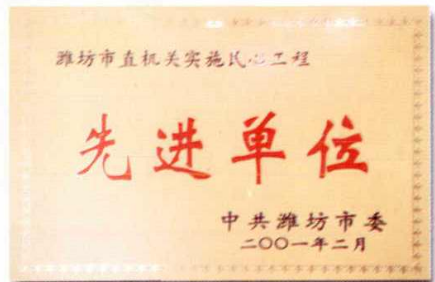 潍坊市直机关实施民心工程
先进单位
中共潍坊市委
二〇〇一年二月